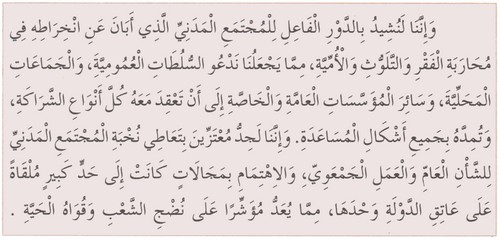 وَإِنَّنَا لَنُشِيدُ بِالدَّوْرِ الْفَاعِلِ لِلْمُجْتَمَعِ الْمَدَنِيِّ الَّذِي أَبَانَ عَنِ انْخِرَاطِهِ فِي
مُحَارَبَةِ الْفَقْرِ وَالتَّلَوُّثِ وَالْأُمِّيَّةِ، مِمَّا يَجْعَلُنَا نَدْعُو السُّلُطَاتِ الْعُمُومِيَّةَ، وَالْجَمَاعَاتِ
الْمَحَلِّيَّةَ، وَسَائِرَ الْمُؤَسَّسَاتِ الْعَامَّةِ وَالْخَاصَّةِ إِلَى أَنْ تَعْقِدَ مَعَهُ كُلَّ أَنْوَاعِ الشَّرَاكَةِ،
وَتُمِدَّهُ بِجَمِيعِ أَشْكَالِ الْمُسَاعَدَةِ. وَإِنَّنَا لَجِدُّ مُعْتَزِّينَ بِتَعَاطِي نُخْبَةِ الْمُجْتَمَعِ الْمَدَنِيِّ
لِلشَّأْنِ الْعَامِّ وَالْعَمَلِ الْجَمْعَوِيِّ، وَالِاهْتِمَامِ بِمَجَالَاتٍ كَانَتْ إِلَى حَدٍّ كَبِيرٍ مُلْقَاةً
عَلَى عَاتِقِ الدَّوْلَةِ وَحْدَهَا، مِمَّا يُعَدُّ مُؤَشِّرًا عَلَى نُضْجِ الشَّعْبِ وَقُوَاهُ الْحَيَّةِ .